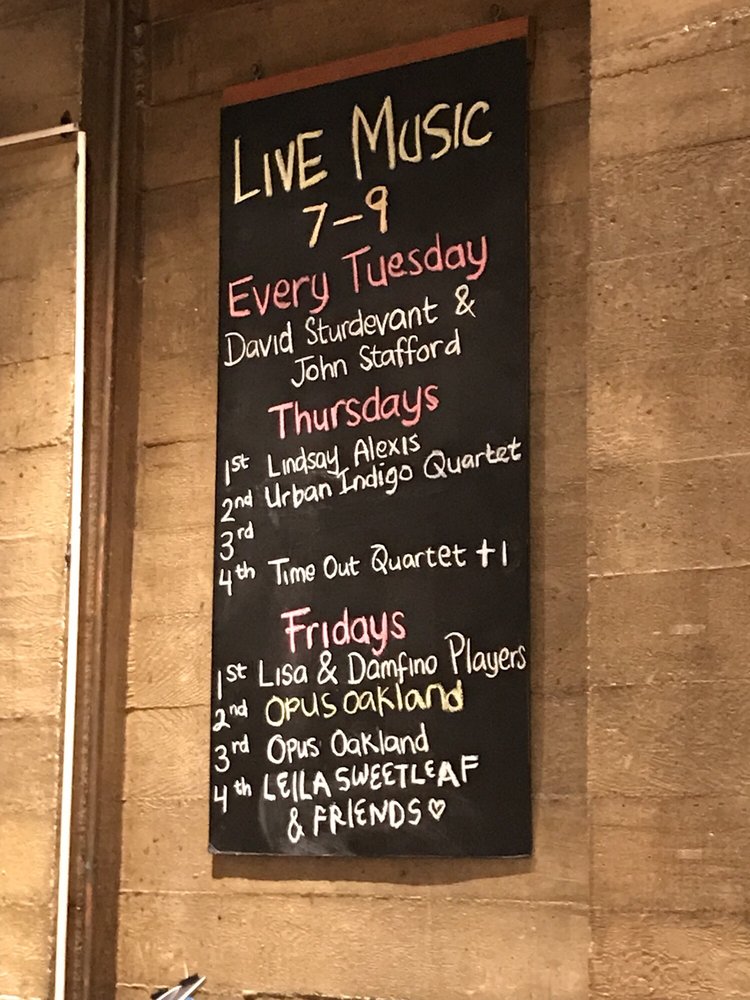 LIVE MUSIC
7-9
Every Tuesday
David Sturdevant &
John Stafford
Thursdays
1st Lindsay Alexis
2nd Urban Indigo Quartet
3rd
4th Time Out Quartet +1
Fridays
1st Lisa & Damfino Players
2nd Opus Oakland
3rd Opus Oakland
4th LEILA SWEETLEAF
& FRIENDS♡